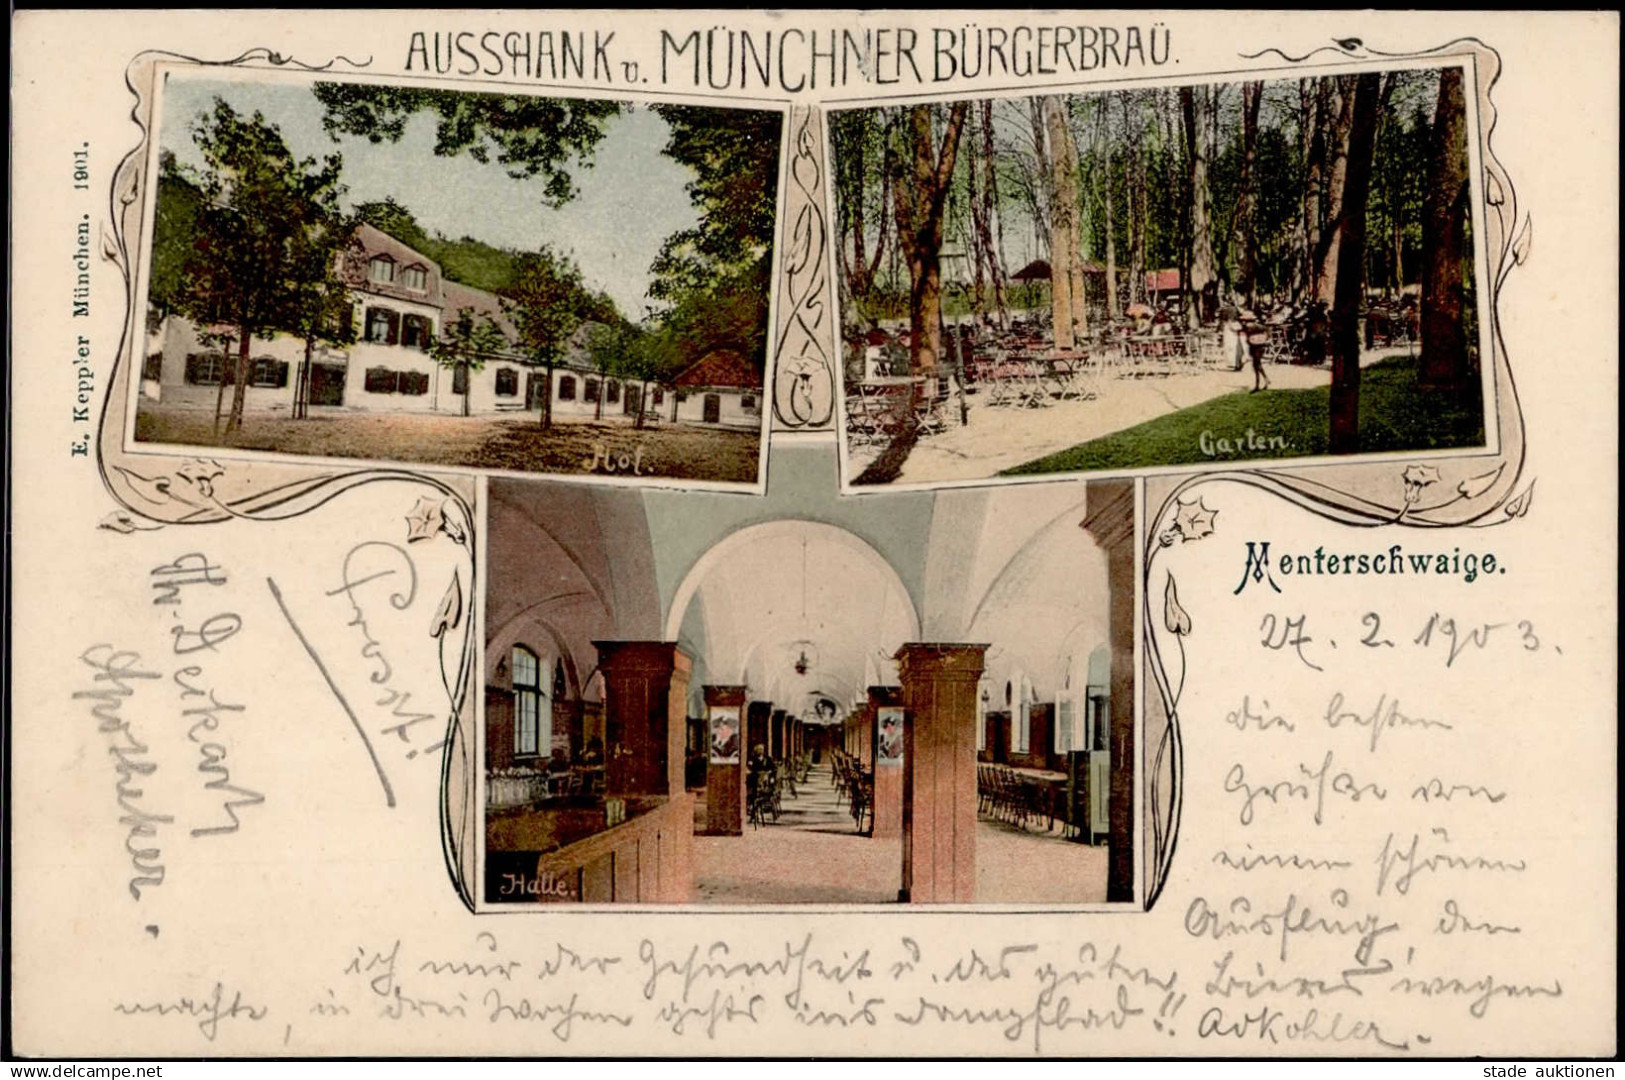 AUSSCHANK v. MÜNCHNER BÜRGERBRÄU.
E. Keppler München. 1901.
Hof.
Garten.
Halle.
Menterschwaige.
27. 2. 1903.
Die besten
Grüße von
einem schönen
Ausflug, den
ich nur der Gesundheit u. des guten Bieres wegen
machte, in drei Wochen gehts ins Dampfbad!! AdKohler.
Prosit!
Th. Deikart
Apotheker.
delcampe.net
stade auktionen